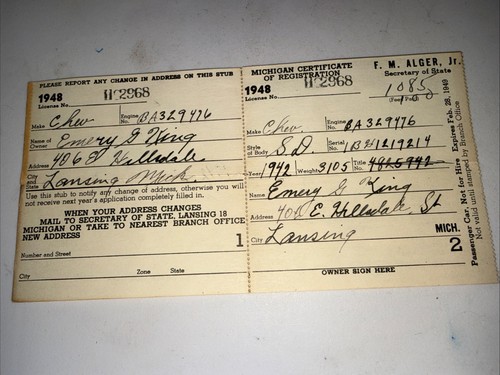 PLEASE REPORT ANY CHANGE IN ADDRESS ON THIS STUB
1948
License No. 2968
Make Chev Engine No. BA329476
Name of Owner Emery G King
Address 406 E Hillsdale
City and State Lansing Mich
Use this stub to notify any change of address, otherwise you will
not receive next year's application completely filled in.
WHEN YOUR ADDRESS CHANGES
MAIL TO SECRETARY OF STATE, LANSING 18
MICHIGAN OR TAKE TO NEAREST BRANCH OFFICE
NEW ADDRESS
1
Number and Street
City Zone State
MICHIGAN CERTIFICATE
OF REGISTRATION
F. M. ALGER, Jr.
Secretary of State
1948
License No. 2968
1085
(Fee Paid)
Make Chev Engine No. BA329476
Style of Body SD Serial No.
Year 1942 Weight 3105 Title No.
Name Emery G King
Address 406 E. Hillsdale St
City Lansing MICH.
2
OWNER SIGN HERE
Passenger Car, Not for Hire Expires Feb. 28, 1949
Not valid until stamped by Branch Office